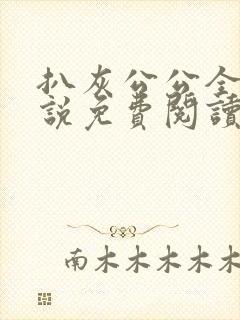 扒灰公公全
說免費閱讀
南木木木木